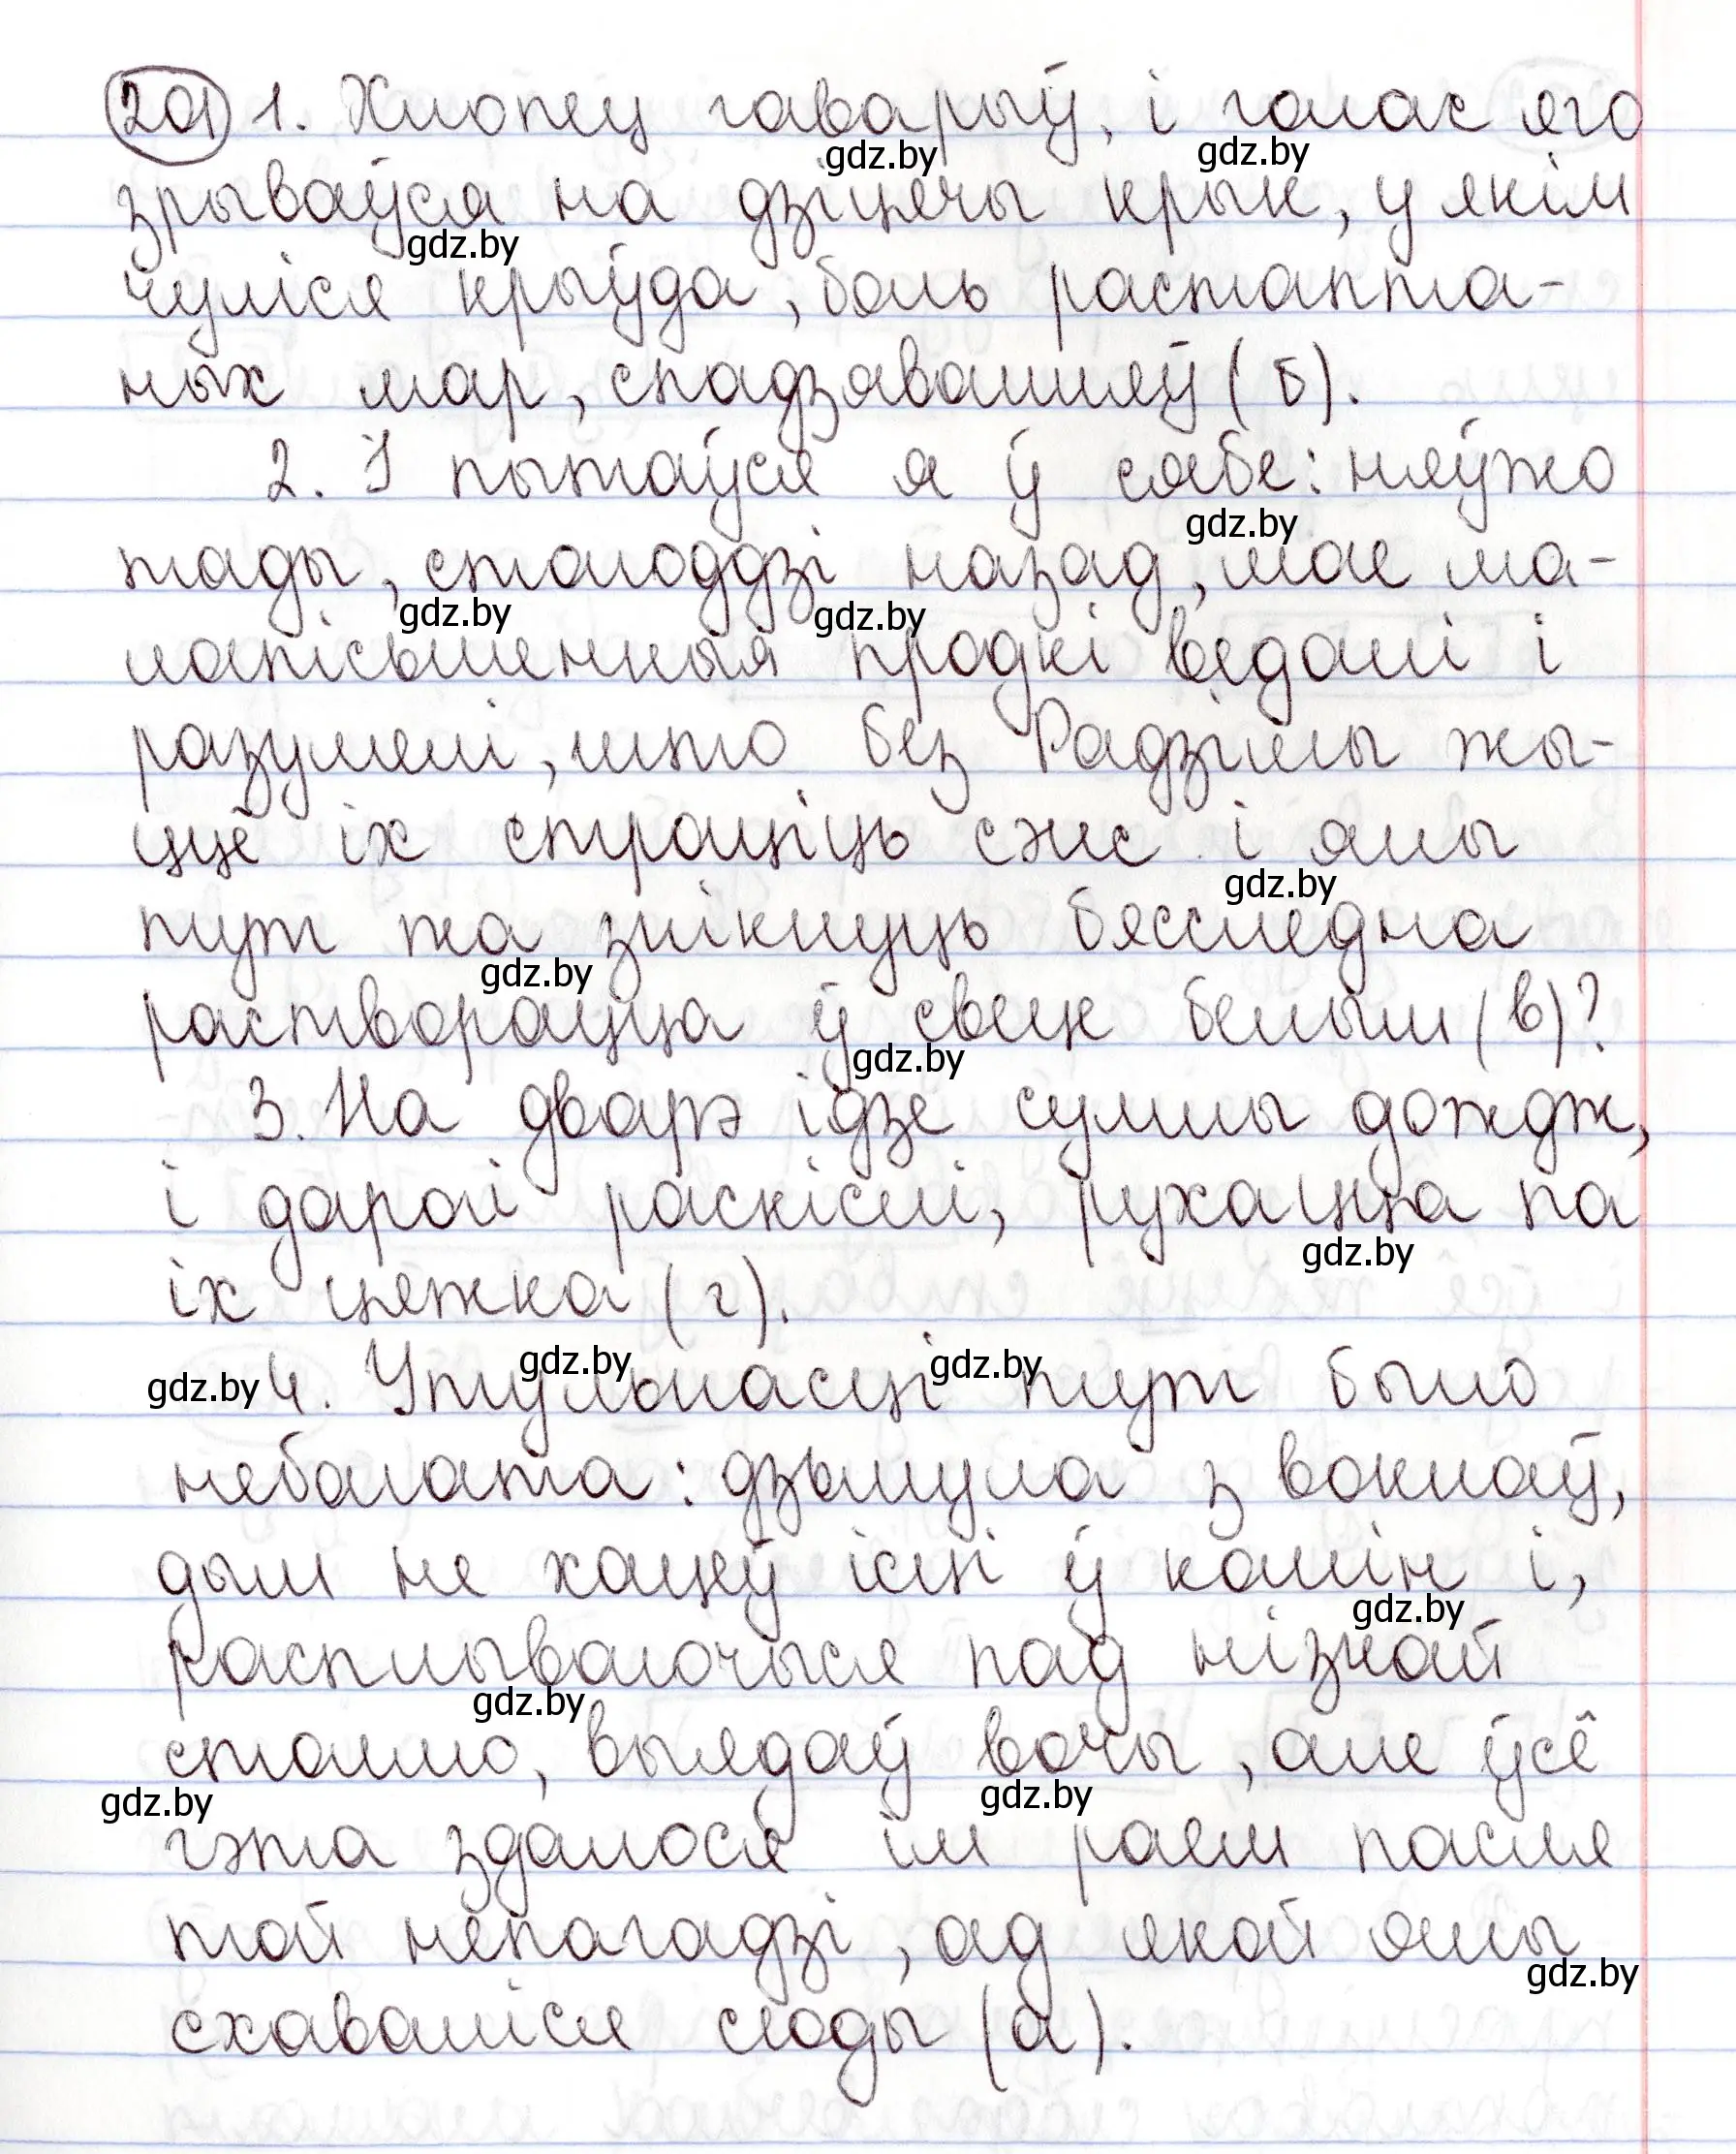 201 1. Хлопец гаварыў, і голас яго
gdz.by gdz.by
зрываўся на дзіцячы крык, у якім
gdz.by
чуліся крыўда, боль растапта-
ных мар, спадзяванняў (б).
2. І пытаўся я ў сябе: няўжо
gdz.by
тады, стагоддзі назад, мае ма-
gdz.by gdz.by
лапісьменныя продкі ведалі і
разумелі, што без Радзімы жы-
ццё іх страціць сэнс і яны
gdz.by
тут жа знікнуць бясследна
gdz.by
растворацца ў свеце белым (в)?
gdz.by
3. На дварэ ідзе сумны дождж,
і дарогі раскіслі, рухацца па
gdz.by
іх цяжка (г).
gdz.by 4. Утульнасці тут было
gdz.by gdz.by
небагата: дзьмула з вокнаў,
дым не хацеў ісці ў комін і,
gdz.by
расплываючыся пад нізкай
gdz.by
столлю, выядаў вочы, але ўсё
gdz.by gdz.by
гэта здалося ім раем пасля
той непагадзі, ад якой яны
gdz.by
схаваліся сюды (а).